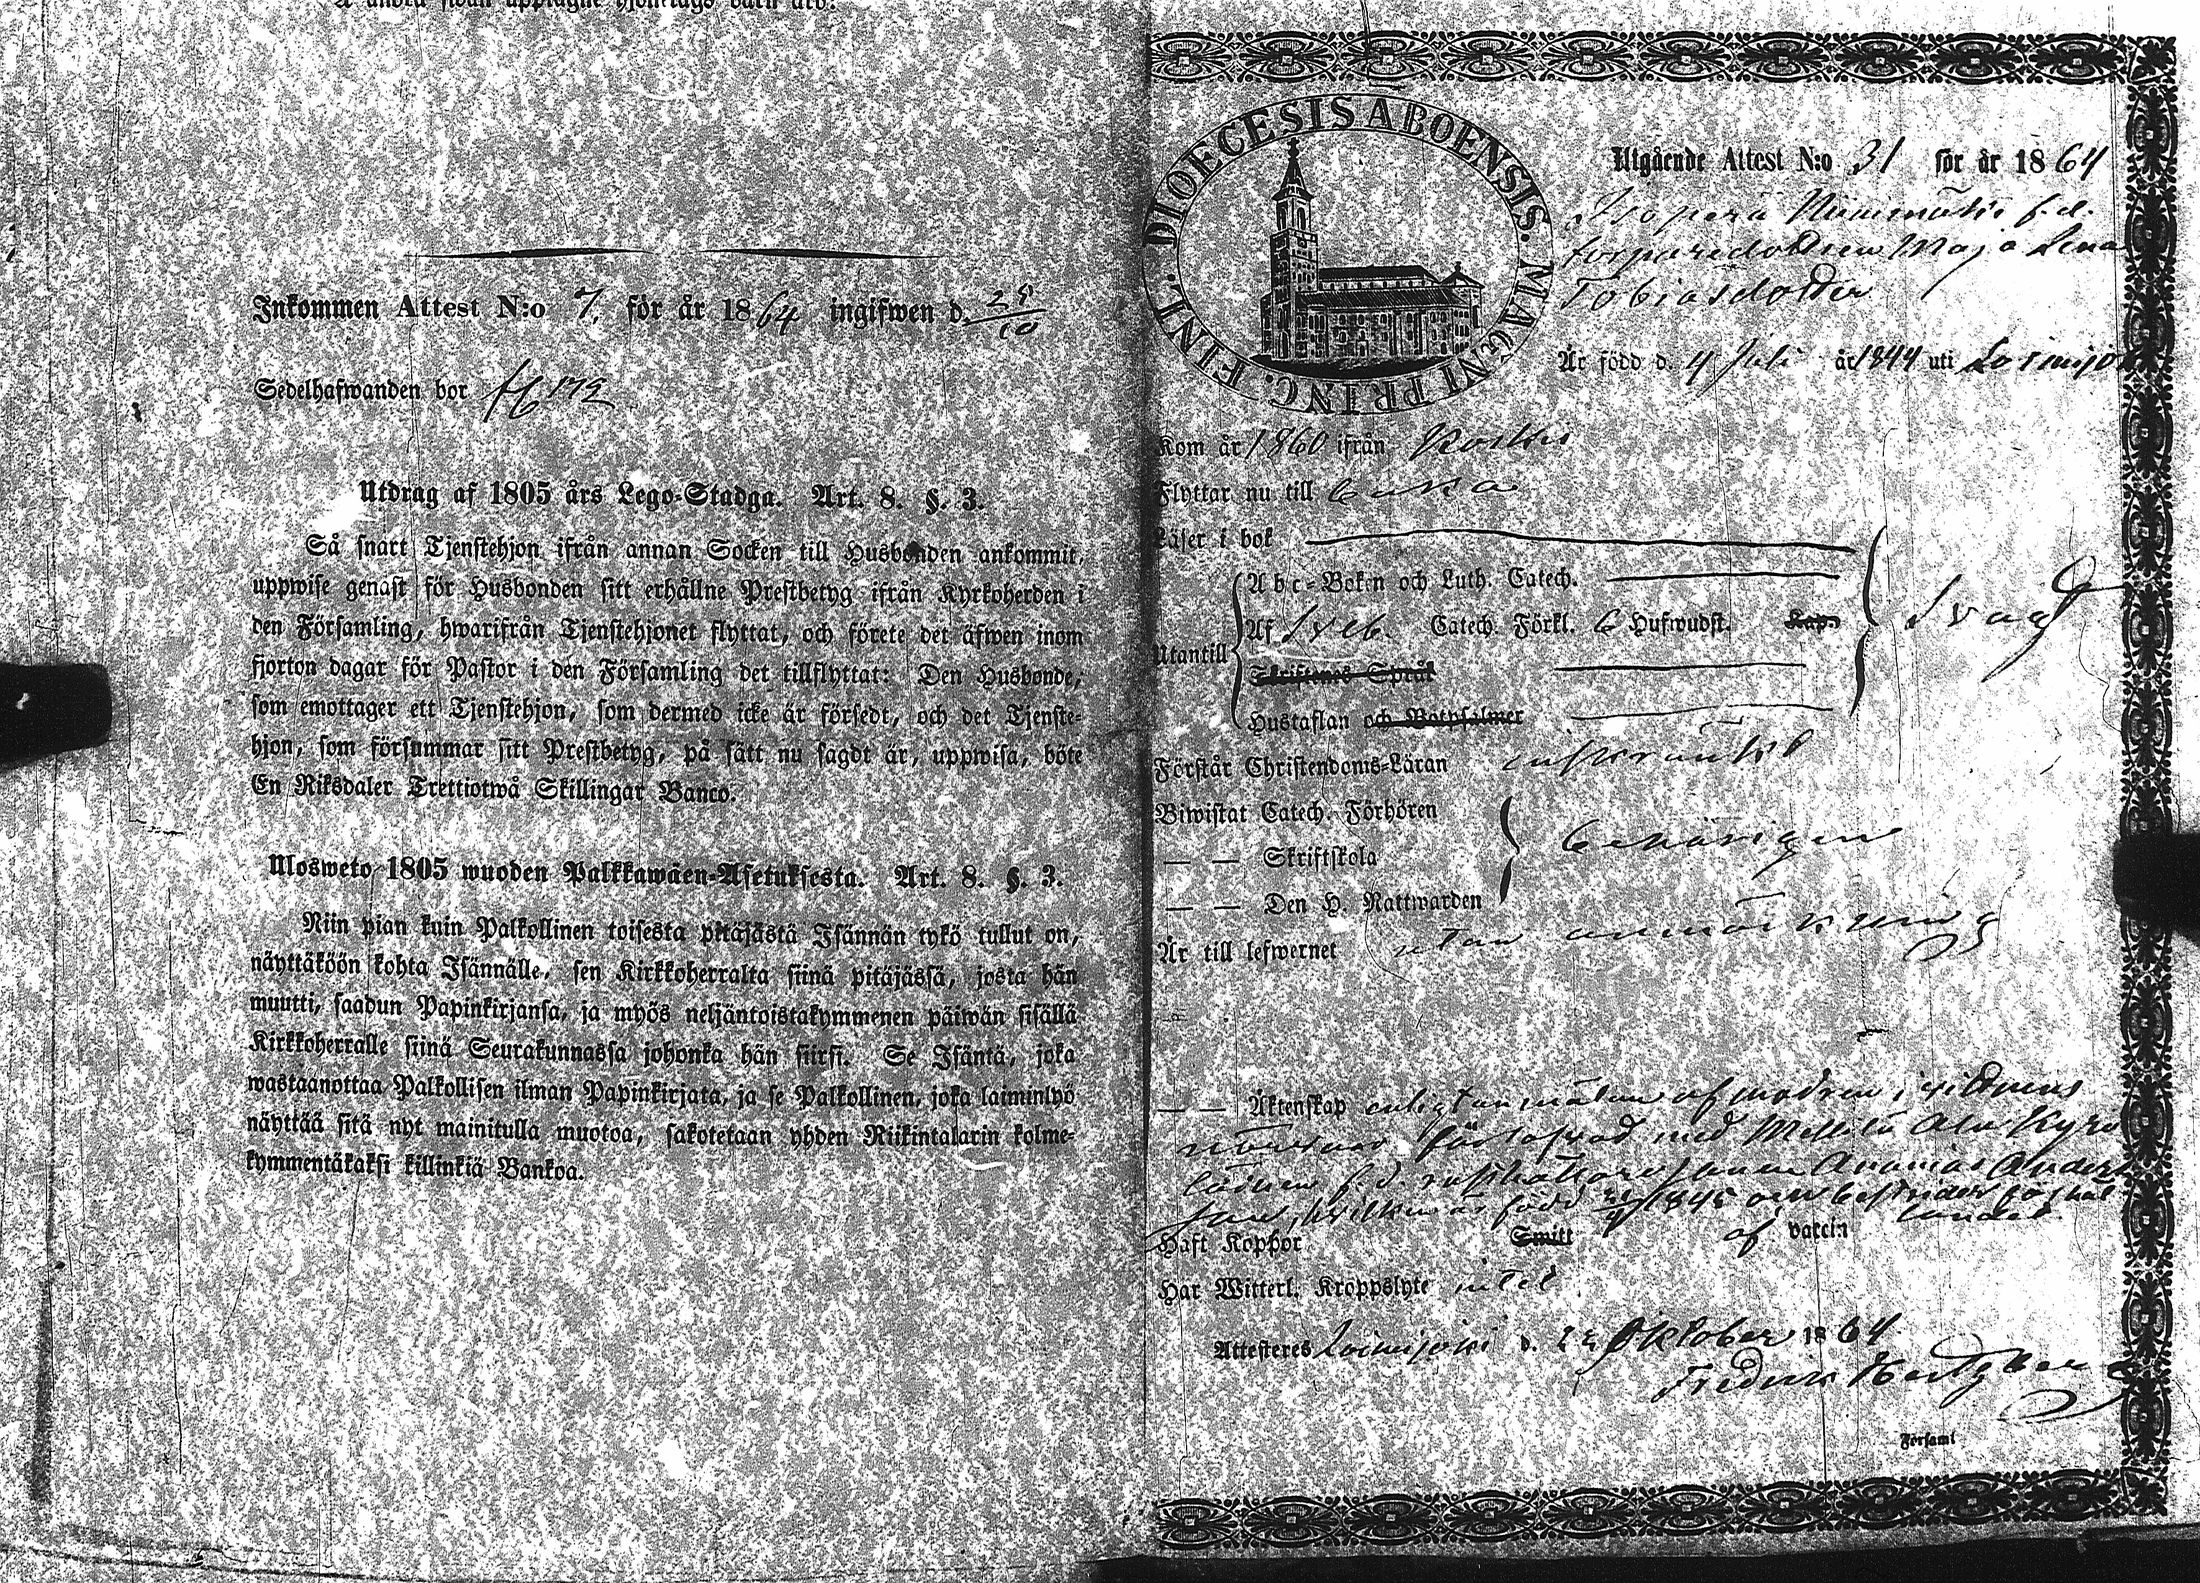 Inkommen Attest N:o 7. för år 1864 ingifwen d. 28/10
Sedelhafwanden bor
Utdrag af 1805 års Lego-Stadga. Art. 8. §. 3.
Så snart Tjenstehjon ifrån annan Socken till Husbonden ankommit,
uppwise genast för Husbonden sitt erhållne Prestbetyg ifrån Kyrkoherden i
den Församling, hwarifrån Tjenstehjonet flyttat, och förete det äfwen inom
fjorton dagar för Pastor i den Församling det tillflyttat: Den Husbonde,
som emottager ett Tjenstehjon, som dermed icke är försedt, och det Tjenste-
hjon, som försummar sitt Prestbetyg, på sätt nu sagdt är, uppwisa, böte
En Riksdaler Trettiotwå Skillingar Banco.
Ulosweto 1805 wuoden Palkkawäen-Asetuksesta. Art. 8. §. 3.
Niin pian kuin Palkollinen toisesta pitäjästä Isännän tykö tullut on,
näyttäköön kohta Isännälle, sen Kirkkoherralta siinä pitäjässä, josta hän
muutti, saadun Papinkirjansa, ja myös neljäntoistakymmenen päiwän sisällä
Kirkkoherralle siinä Seurakunnassa johonka hän siirsi. Se Isäntä, joka
wastaanottaa Palkollisen ilman Papinkirjata, ja se Palkollinen, joka laiminlyö
näyttää sitä nyt mainitulla muotoa, sakotetaan yhden Riikintalarin kolme-
kymmentäkaksi killinkiä Bankoa.
DIOECESIS ABOENSIS. MAGNI PRINC. FINL.
Utgående Attest N:o 31 för år 1864
Isoperä Niinimäki f.d.
torparedottren Maja Lena
Tobiasdotter
Är född d. 4 Juli år 1844 uti Loimijoki
Kom år 1860 ifrån
Flyttar nu till
Läser i bok
Abc-Boken och Luth. Catech.
Utantill Af Sveb. Catech. Förkl. 6 Hufwudst. Kap. Svagt
Skriftenes Språk
Hustaflan och Botpsalmer
Förstår Christendoms-Läran inskränkt
Biwistat Catech. Förhören
— — Skriftskola behörigen
— — Den H. Nattwarden
Är till lefwernet utan anmärkning
— — Äktenskap enligt anmälan af modren i vittnens
närvaro förlofvad med
f.d. Ananias Anders
son, hvilken är född 1845
Haft Koppor Smitt af vaccin
Har Witterl. Kroppslyte intet
Attesteres Loimijoki d. Oktober 1864
Fredrik Hertzberg
Församl